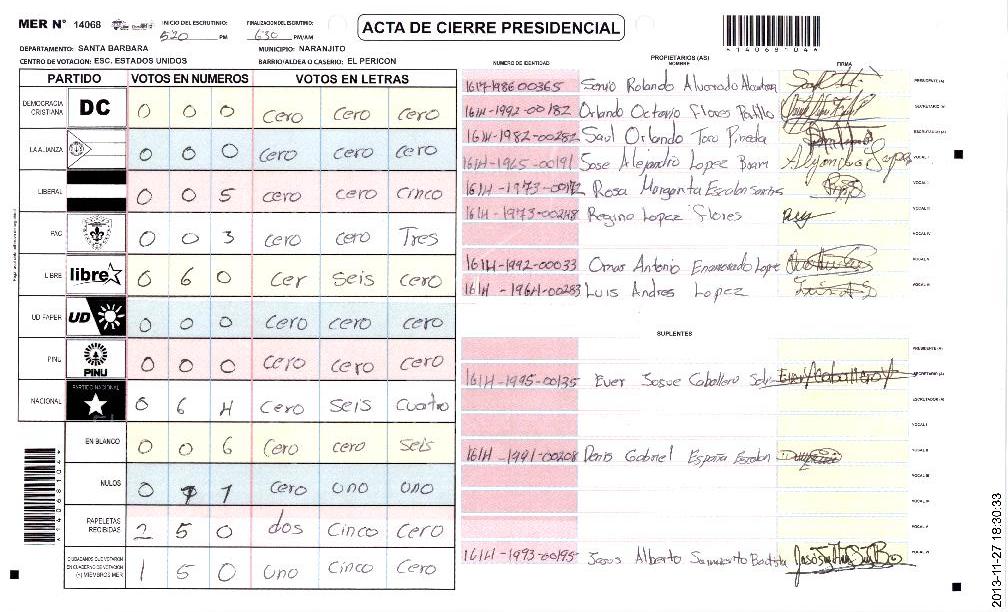 MER N° 14068
INICIO DEL ESCRUTINIO: 520 PM
FINALIZACION DEL ESCRUTINIO: 630 PM/AM
ACTA DE CIERRE PRESIDENCIAL
DEPARTAMENTO: SANTA BARBARA
MUNICIPIO: NARANJITO
CENTRO DE VOTACION: ESC. ESTADOS UNIDOS
BARRIO/ALDEA O CASERIO: EL PERICON
PARTIDO VOTOS EN NUMEROS VOTOS EN LETRAS
DEMOCRACIA CRISTIANA DC 0 0 0 cero cero cero
LA ALIANZA 0 0 0 cero cero cero
LIBERAL 0 0 5 cero cero cinco
PAC 0 0 3 cero cero Tres
LIBRE libre 0 6 0 cer seis cero
UD FAPER UD 0 0 0 cero cero cero
PINU PINU 0 0 0 cero cero cero
NACIONAL PARTIDO NACIONAL 0 6 4 cero seis cuatro
EN BLANCO 0 0 6 cero cero seis
NULOS 0 1 1 cero uno uno
PAPELETAS RECIBIDAS 2 5 0 dos cinco cero
CIUDADANOS QUE VOTARON EN CUADERNO DE VOTACION (+) MIEMBROS MER 1 5 0 uno cinco cero
PROPIETARIOS (AS)
NUMERO DE IDENTIDAD NOMBRE FIRMA
1617-1986 00365 Rolando Alvarado PRESIDENTE (A)
1614-1992-00182 Orlando Octavio Flores SECRETARIO (A)
1614-1982-00282 Saul Orlando Toro Pineda ESCRUTADOR (A)
1614-1965-00191 Jose Alejandro Lopez VOCAL I
1614-1973-00172 Rosa Margarita Escalon santos VOCAL II
1614-1973-00248 Regino Lopez Flores VOCAL IV
1614-1992-00033 Omar Antonio Enamorado Lope VOCAL V
1614-1964-00283 Luis Andres Lopez
SUPLENTES
PRESIDENTE (A)
1614-1995-00135 Ever Josue Caballero SECRETARIO (A)
ESCRUTADOR (A)
VOCAL I
1614-1991-00208 Denis Gabriel España Escalon VOCAL II
VOCAL III
VOCAL IV
VOCAL V
1614-1993-00195 Jesus Alberto Sarmiento Batista VOCAL VI
1406810 4
2013-11-27 18:30:33